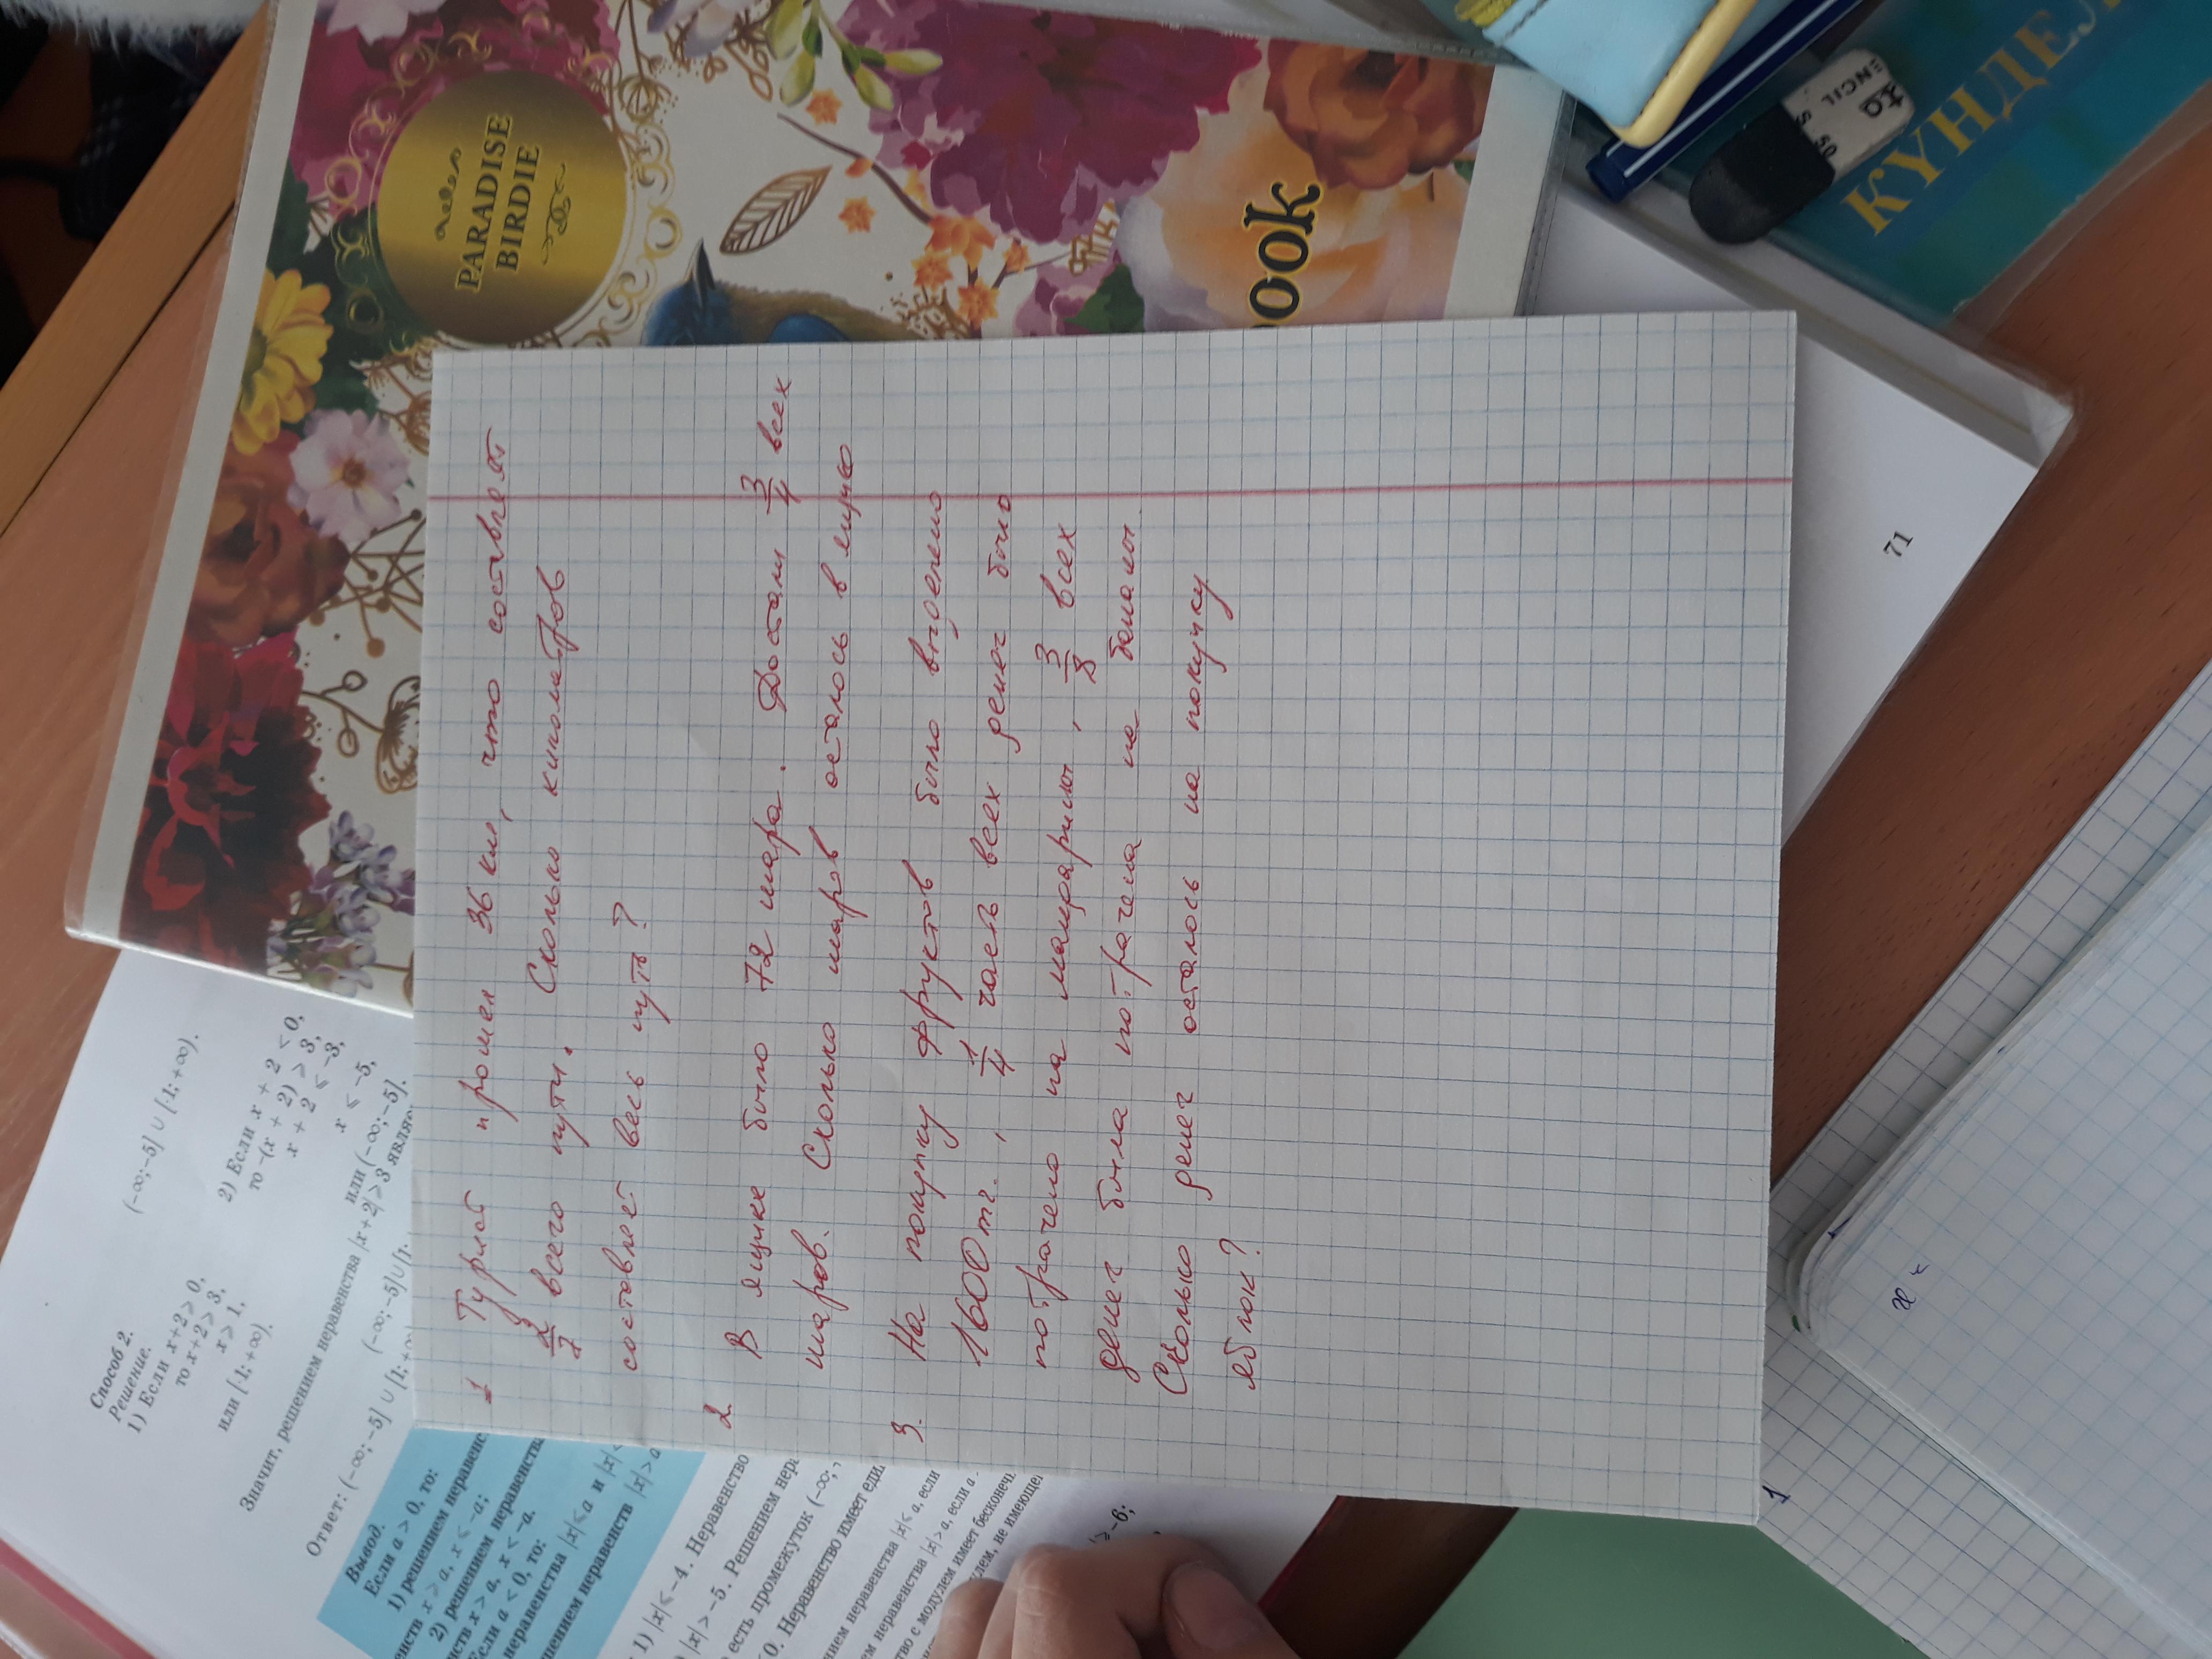 1 Турист прошел 36 км, что составляет
2/7 всего пути. Сколько километров
составляет весь путь?
2 В ящике было 72 шара. Достали 3/4 всех
шаров. Сколько шаров осталось в ящике
3. На покупку фруктов было выделено
1600 тг., 1/4 часть всех денег было
потрачено на мандарины, 3/8 всех
денег была потрачена на бананы.
Сколько денег осталось на покупку
яблок?
PARADISE
BIRDIE
ook
КҮНДЕЛ
ENCIL
71
Способ 2.
Решение.
1) Если x + 2 ⩾ 0,
то x + 2 ⩾ 3,
x ⩾ 1,
или [1; +∞).
(−∞; −5] ∪ [1; +∞).
2) Если x + 2 < 0,
то −(x + 2) ⩾ 3,
x + 2 ⩽ −3,
x ⩽ −5,
или (−∞; −5].
Значит, решением неравенства |x + 2| ⩾ 3 являе
Ответ: (−∞; −5] ∪ [1;
Вывод.
Если a > 0, то:
1) решением неравенс
x > a, x < −a;
2) решением неравенства
x > a, x < −a.
если a < 0, то:
неравенства |x| ⩽ a и |x| <
шением неравенств |x| > a
1) |x| ⩽ −4. Неравенство
|x| > −5. Решением нера
есть промежуток (−∞;
0. Неравенство имеет еди
нием неравенства |x| ⩽ a, если
ем неравенства |x| > a, если a
тво с модулем имеет бесконечн
улем, не имеющее
⩾ −6;
1